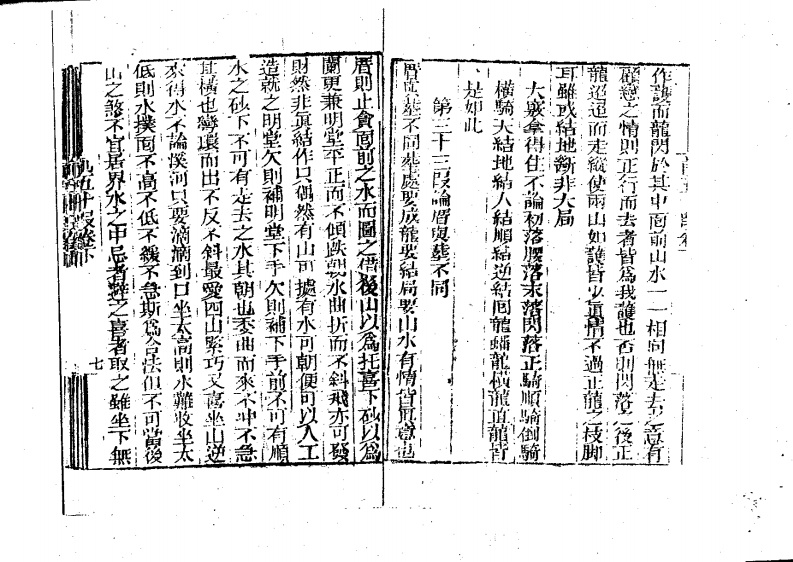 作護而龍閃於其中面前山水一一相向無走去之意有
顧戀之情則正行而去者皆為我護也否則閃落之後正
龍迢迢而走縱使兩山如護皆少真情不過正龍之枝脚
耳雖或結地斷非大局
大處拿得住不論初落腰落末落閃落正騎順騎倒騎
橫騎天結地結人結順結逆結回龍蟠龍橫龍直龍皆
是如此
第三十三段論厝與墓不同
厝與墓不同墓處要成龍要結局要山水有情皆真意也
厝則止貪面前之水而圖之借後山以為托喜下砂以為
闌更兼明堂平正而不傾跌朝水曲折而不斜飛亦可發
財然非真結作只偶然有山可據有水可朝便可以人工
造就之明堂欠則補明堂下手欠則補下手前不可有順
水之砂下不可有走去之水其朝也委曲而來不冲不急
其橫也彎環而出不反不斜最愛四山緊巧又高坐山逆
來得水不論溪河只要滴滴到口坐太高則水難收坐太
低則水撲面不高不低不緩不急斯為合法但不可當後
山之煞不宜居界水之中忌者避之喜者取之雖坐下無
七